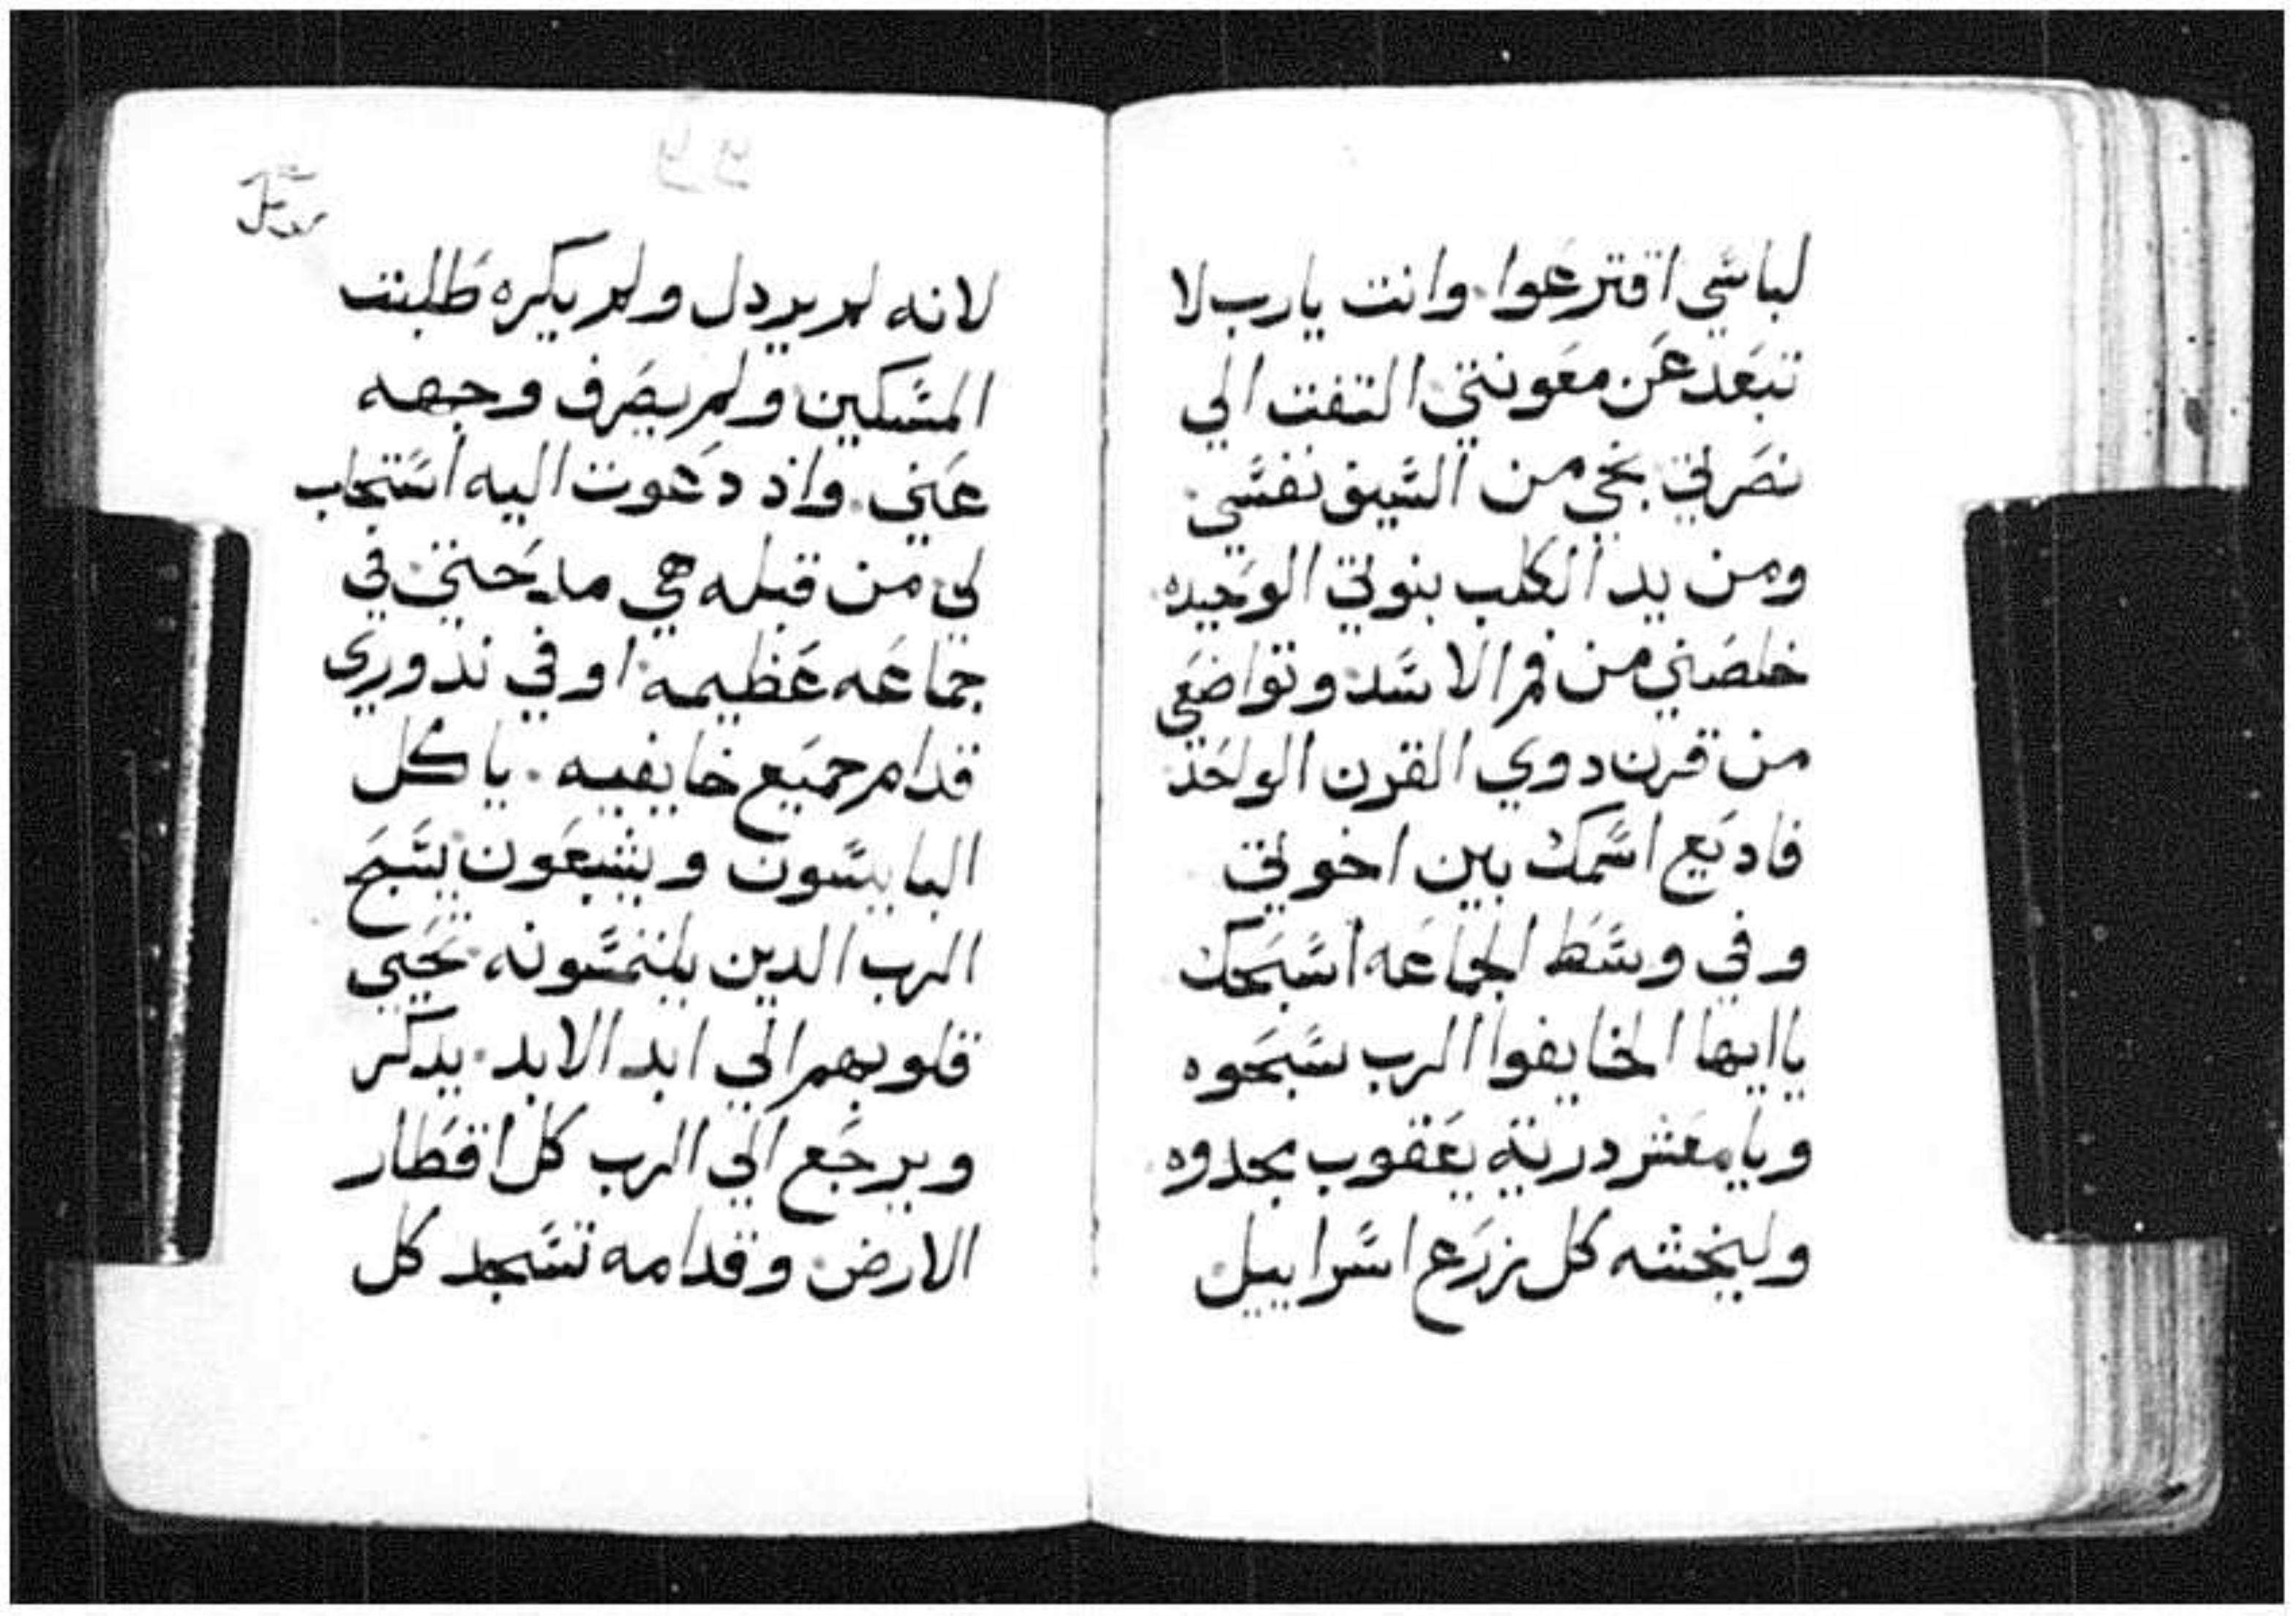 لباسي اقترعوا. وانت يارب لا
تبعد عن معونتي التفت الي
نصرتي نجي من السيف نفسي.
ومن يد الكلب بنوتي الوحيده.
خلصني من فم الاسد وتواضعي
من قرن دوي القرن الواحد
فاديع اسمك بين اخوتي
وفي وسط الجماعه اسبحك
ياايها الخايفوا الرب سبحوه
ويا معشر درية يعقوب مجدوه.
وليخشه كل زرع اسراييل.
لانه لم يردل ولم يكره طلبت
المسكين ولم يصرف وجهه
عني. واد دعوت اليه استجاب
لي من قبله هي مدحتي في
جماعه عظيمه. اوفي ندوري
قدام جميع خايفيه. ياكل
البايسون ويشبعون يسبح
الرب الدين يلتمسونه تحيي
قلوبهم الي ابد الابد. يدكر
ويرجع الي الرب كل اقطار
الارض وقدامه تسجد كل